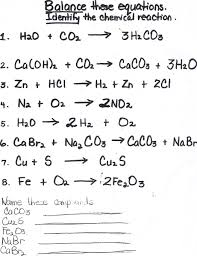 Balance these equations.
Identify the chemical reaction.
1. H2O + CO2 → 3H2CO3
2. Ca(OH)2 + CO2 → CaCO3 + 3H2O
3. Zn + HCl → H2 + Zn + 2Cl
4. N2 + O2 → 2NO2
5. H2O → 2H2 + O2
6. CaBr2 + Na2CO3 → CaCO3 + NaBr
7. Cu + S → Cu2S
8. Fe + O2 → 2Fe2O3
Name these compounds
CaCO3
Cu2S
Fe2O3
NaBr
CaBr2